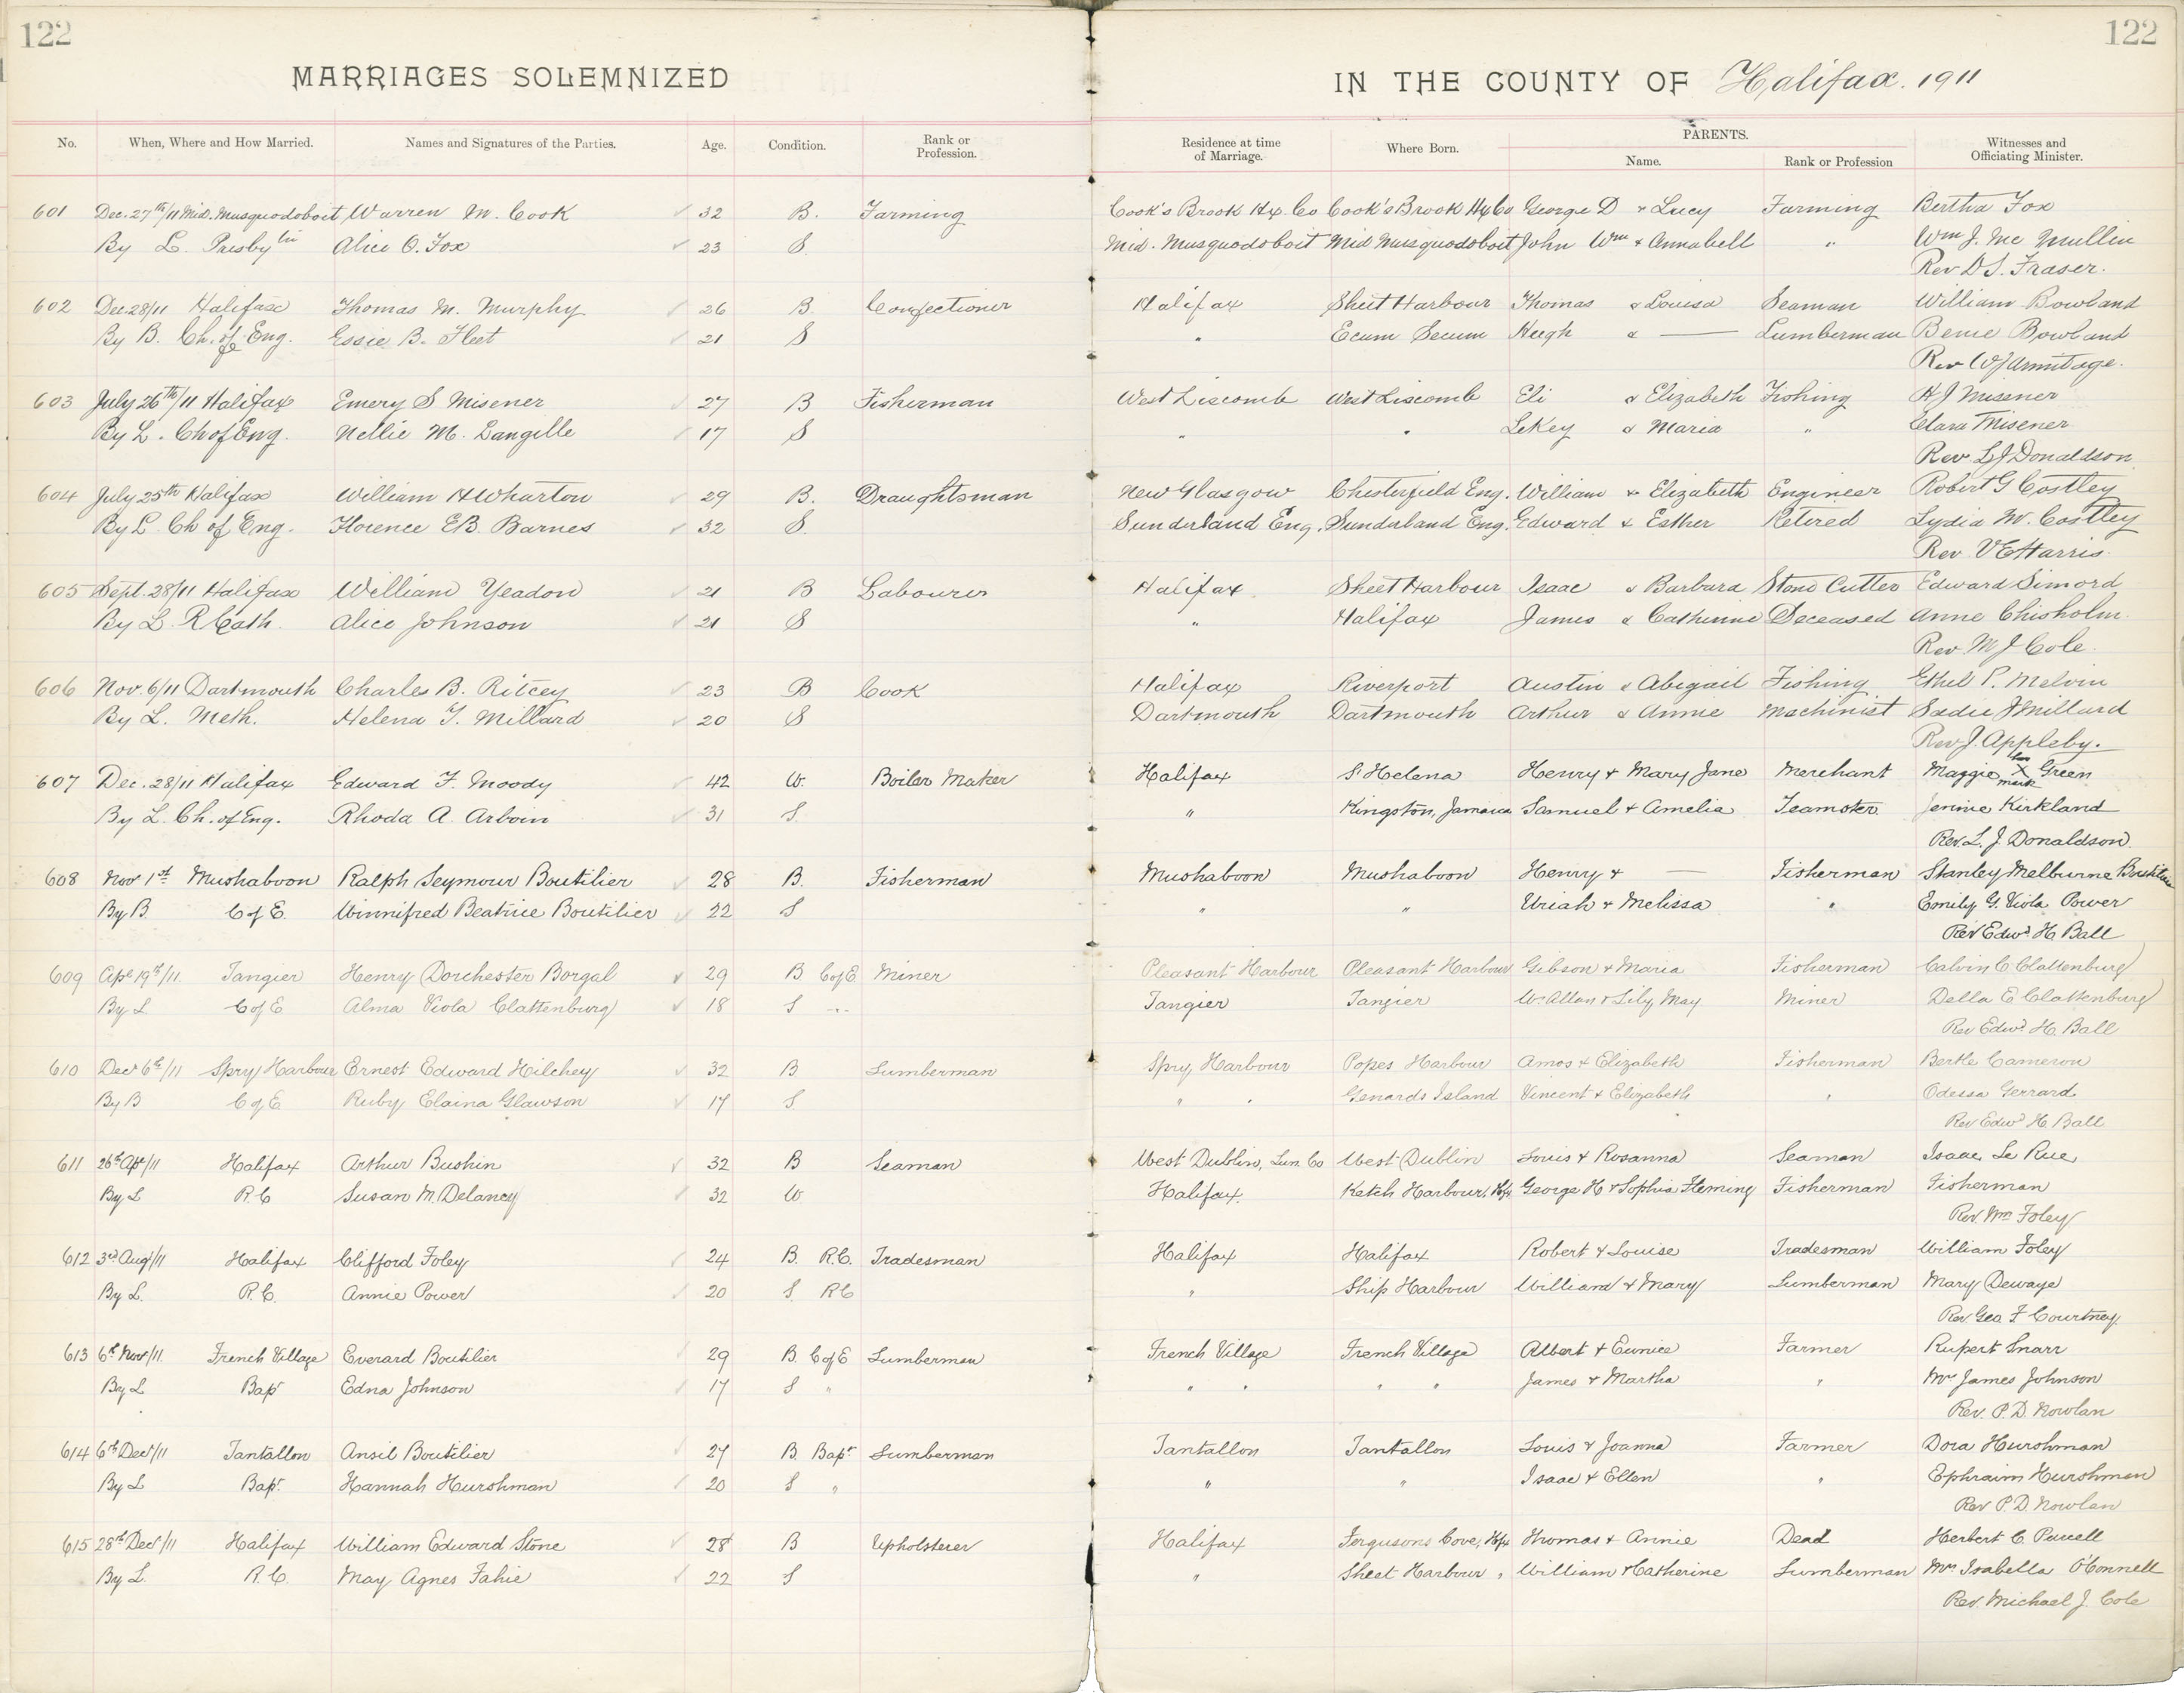 122 122
MARRIAGES SOLEMNIZED IN THE COUNTY OF Halifax. 1911
No. When, Where and How Married. Names and Signatures of the Parties. Age. Condition. Rank or Profession. Residence at time of Marriage. Where Born. PARENTS. Name. Rank or Profession Witnesses and Officiating Minister.
601 Dec. 27th/11 Mid. Musquodoboit Warren M. Cook 32 B. Farming Cook's Brook Hx. Co Cook's Brook Hx Co George D & Lucy Farming Bertha Fox
By L. Presbytn Alice O. Fox 23 S. Mid. Musquodoboit Mid Musquodoboit John Wm & Annabell " Wm J. Mc Mullin
Rev D S. Fraser.
602 Dec 28/11 Halifax Thomas M. Murphy 26 B. Confectioner Halifax Sheet Harbour Thomas & Louisa Seaman William Bowland
By B. Ch. of Eng. Essie B. Fleet 21 S " Ecum Secum Hugh & — Lumberman Bowland
Rev W J Armitage.
603 July 26th/11 Halifax Emery S Misener 27 B Fisherman West Liscomb West Liscomb Eli & Elizabeth Fishing H J Misener
By L. Ch of Eng. Nellie M. Langille 17 S " " LeKey & Maria " Clara Misener
Rev. L J Donaldson
604 July 25th Halifax William H Wharton 29 B. Draughtsman New Glasgow Chesterfield Eng. William & Elizabeth Engineer Robert G Costley
By L Ch of Eng. Florence E B. Barnes 32 S. Sunderland Eng. Sunderland Eng. Edward & Esther Retired Lydia M. Costley
Rev. V E Harris
605 Sept. 28/11 Halifax William Yeadon 21 B Labourer Halifax. Sheet Harbour Isaac & Barbara Stone Cutter Edward Simord
By L. R Cath. Alice Johnson 21 S " Halifax James & Catherine Deceased Anne Chisholm.
Rev. M J Cole.
606 Nov. 6/11 Dartmouth Charles B. Ritcey 23 B Cook Halifax Riverport Austin & Abigail Fishing Ethel P. Melvin
By L. Meth. Helena F. Millard 20 S Dartmouth Dartmouth Arthur & Annie Machinist Sadie J Millard
Rev J. Appleby.
607 Dec. 28/11 Halifax Edward F. Moody 42 W. Boiler Maker Halifax St Helena Henry & Mary Jane Merchant Maggie her X mark Green
By L. Ch. of Eng. Rhoda A. Arboin 31 S. " Kingston, Jamaica Samuel & Amelia Teamster. Jennie Kirkland
Rev. L. J. Donaldson.
608 Nov 1st Mushaboon Ralph Seymour Boutilier 28 B. Fisherman Mushaboon Mushaboon Henry & — Fisherman Stanley Melburne Boutilier
By B. C of E. Winnifred Beatrice Boutilier 22 S " " Uriah & Melissa " Emily G. Viola Power
Rev Edwd. H. Ball
609 Apl 19th/11. Tangier Henry Dorchester Borgal 29 B C of E Miner Pleasant Harbour Pleasant Harbour Gibson & Maria Fisherman Calvin C Clattenburg
By L C of E Alma Viola Clattenburg 18 S " Tangier Tangier W. Allan & Lily May Miner Della E Clattenburg
Rev Edwd. H. Ball
610 Decr 6th/11 Spry Harbour Ernest Edward Hilchey 32 B Lumberman Spry Harbour Popes Harbour Amos & Elizabeth Fisherman Bertle Cameron
By B C of E Ruby Elaina Glawson 17 S " " Gerrards Island Vincent & Elizabeth " Odessa Gerrard
Rev Edwd H. Ball
611 26th Apl/11 Halifax Arthur Bushin 32 B Seaman West Dublin, Lun. Co West Dublin Louis & Rosanna Seaman Isaac Le Rue
By L R.C Susan M. Delaney 32 W Halifax. Ketch Harbour, Hfx George H & Sophia Fleming Fisherman Fisherman
Rev. Wm Foley
612 3rd Aug/11 Halifax Clifford Foley 24 B. R.C. Tradesman Halifax Halifax Robert & Louise Tradesman William Foley
By L. R.C. Annie Power 20 S RC " Ship Harbour William & Mary Lumberman Mary Dewaye
Rev. Geo F Courtney
613 6th Nov/11. French Village Everard Boutilier 29 B. C of E Lumberman French Village French Village Albert & Eunice Farmer Rupert Snarr
By L Bap Edna Johnson 17 S " " " " " James & Martha " Mrs James Johnson
Rev. P. D. Nowlan
614 6th Decr/11 Tantallon Ansil Boutilier 27 B Bapt Lumberman Tantallon Tantallon Louis & Joanna Farmer Dora Hurshman
By L Bapt. Hannah Hurshman 20 S " " " Isaac & Ellen " Ephraim Hurshman
Rev P. D. Nowlan
615 28th Decr/11 Halifax William Edward Stone 28 B Upholsterer Halifax Fergusons Cove, Hfx Thomas & Annie Dead Herbert C. Purcell
By L. R.C. May Agnes Fahie 22 S " Sheet Harbour " William & Catherine Lumberman Mrs Isabella O'Connell
Rev. Michael J. Cole